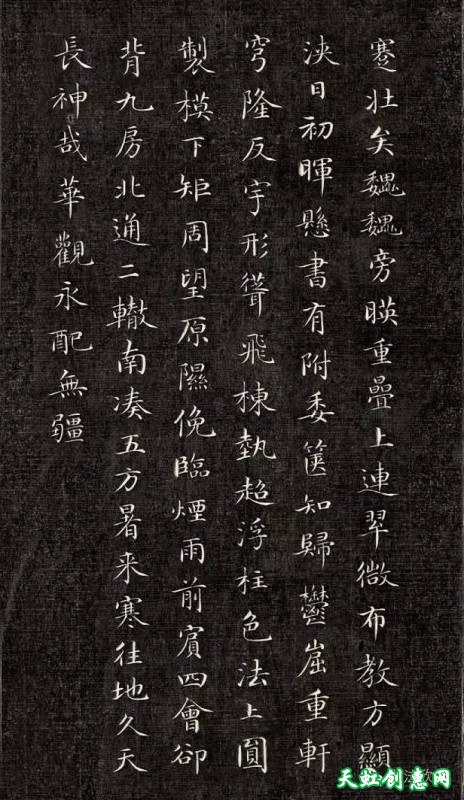 蹇壯矣魏魏旁暎重疊上連翠微布教方顯
浹日初暉懸書有附委篋知歸鬱崫重軒
穹隆反宇形聳飛棟埶超浮柱色法上圓
製模下矩周望原隰俛臨煙雨前賓四會卻
背九房北通二轍南湊五方暑来寒往地久天
長神哉華觀永配無疆
天虹创意网